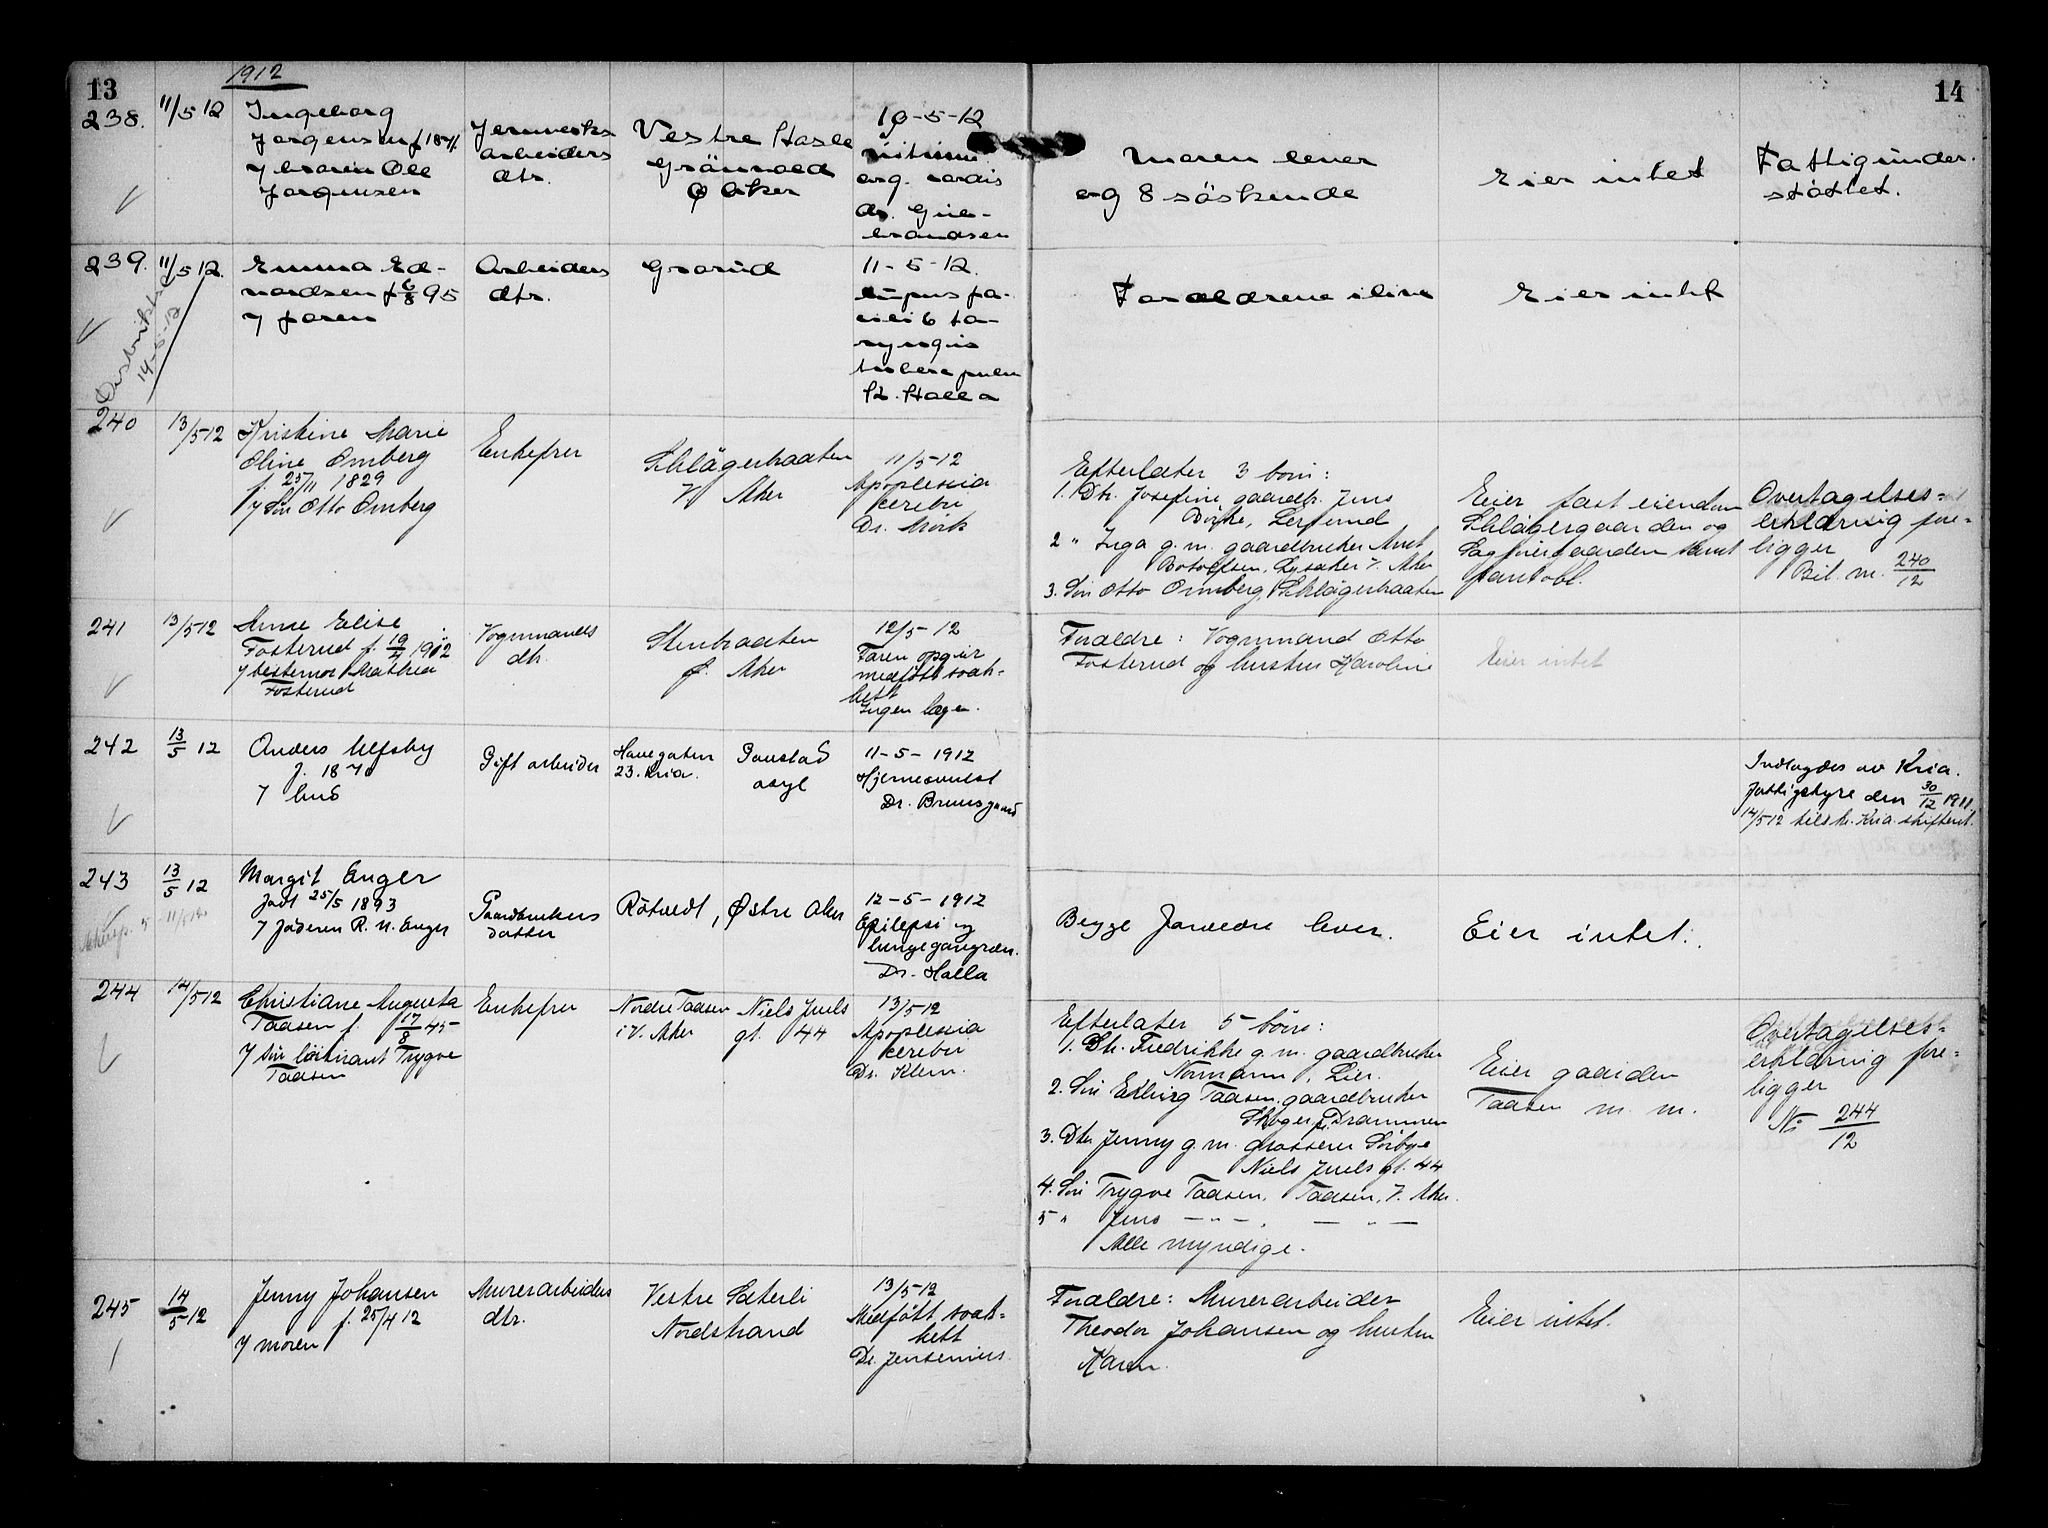 13
1912
14
238.
11/5 12
Ingeborg
Jørgensen f 1871.
v broren Ole
Jørgensen
Jernverks
arbeiders
dtr.
Vestre Hasle
Grönvold
Ø Aker
10-5-12
vitium
org. cordis
dr. Gul-
brandsen
Moren lever
og 8 söskende
Eier intet
Fattigunder-
støttet.
239.
11/5 12.
Emma Ed-
vardsen f 6/8 95
v faren
Arbeiders
dtr.
Grorud
11-5-12.
lupus fa-
ciei & la-
ryngis
tubere pulm
Dr. Halla
Forældrene ilive
Eier intet
14-5-12
240
13/5 12
Kristine Marie
Oline Omberg
f. 25/11 1829
v/ Sön Otto Omberg
Enkefru
Schlägerbraaten
V Aker
11/5-12
Apoplexia
cerebri
Dr. Mörk
Efterlater 3 börn:
1. Dtr. Josefine, gaardbr. Jens
Börke, Lersund
2 " Inga g. m. gaardbruker Amt
Botolfsen, Lysaker V. Aker
3. Sön Otto Omberg, Schlägerbraaten
Eier fast eiendom
Schlägergaarden og
Sagfoergaarden samt
pantobl.
Overtagelses=
erklæring fore=
ligger
Bil. nr. 240/12
241
13/5 12
Anne Elise
Fosterud f. 19/4 1912
v bestemor Mathea
Fosterud
Vognmands
dtr.
Stenbraaten
Ø. Aker
12/5-12
Faren opgir
medfött svak-
hett
Ingen læge.
Forældre: Vognmand Otto
Fosterud og hustru Karoline
Eier intet
242
13/5 12
Anders Ulfsby
f. 1870
v bud
Gift arbeider
Havegaten
23. Kria.
Gaustad
asyl
11-5-1912
Hjernesvulst
Dr. Bruusgaard
Indlagdes av Kria.
fattigstyre den 30/12 1911.
14/5 12 tilst. Kria. skifteret.
243
13/5 12
Margit Enger
född 25/5 1893
v faderen R. N. Enger
Gaardbrukers
datter
Rötvedt, Østre Aker
12-5-1912
Epilepsi og
lungegangræn.
Dr. Halla
Begge forældre lever.
Eier intet.
244
14/5 12
Christiane Augusta
Taasen f. 17/8 45
v sön löitnant Trygve
Taasen
Enkefru
Nordre Taasen
i V. Aker
Niels Juels
gt. 44
13/5 12
Apoplexia
cerebri
Dr. Klem.
Efterlater 5 börn:
1. Dtr. Fredrikke g. m. gaardbruker
Normann, Lier.
2. Sön Edving Taasen, gaardbruker
Skoger pr. Drammen
3. Dtr. Jenny g. m. grosserer Sörbye
Niels Juels gt. 44
4. Sön Trygve Taasen, Taasen, V. Aker.
5 " Jens — " — , — " —
Alle myndige.
Eier gaarden
Taasen m. m.
Overtagelses=
erklæring fore=
ligger
No 244/12
245
14/5 12
Jenny Johansen
f. 25/4 12
v moren
Murerarbeiders
dtr.
Vestre Sæterli
Nordstrand
13/5-12
Medfött svak-
hett
Dr. Jensenius.
Forældre: Murerarbeider
Theodor Johansen og hustru
Karen.
Eier intet.